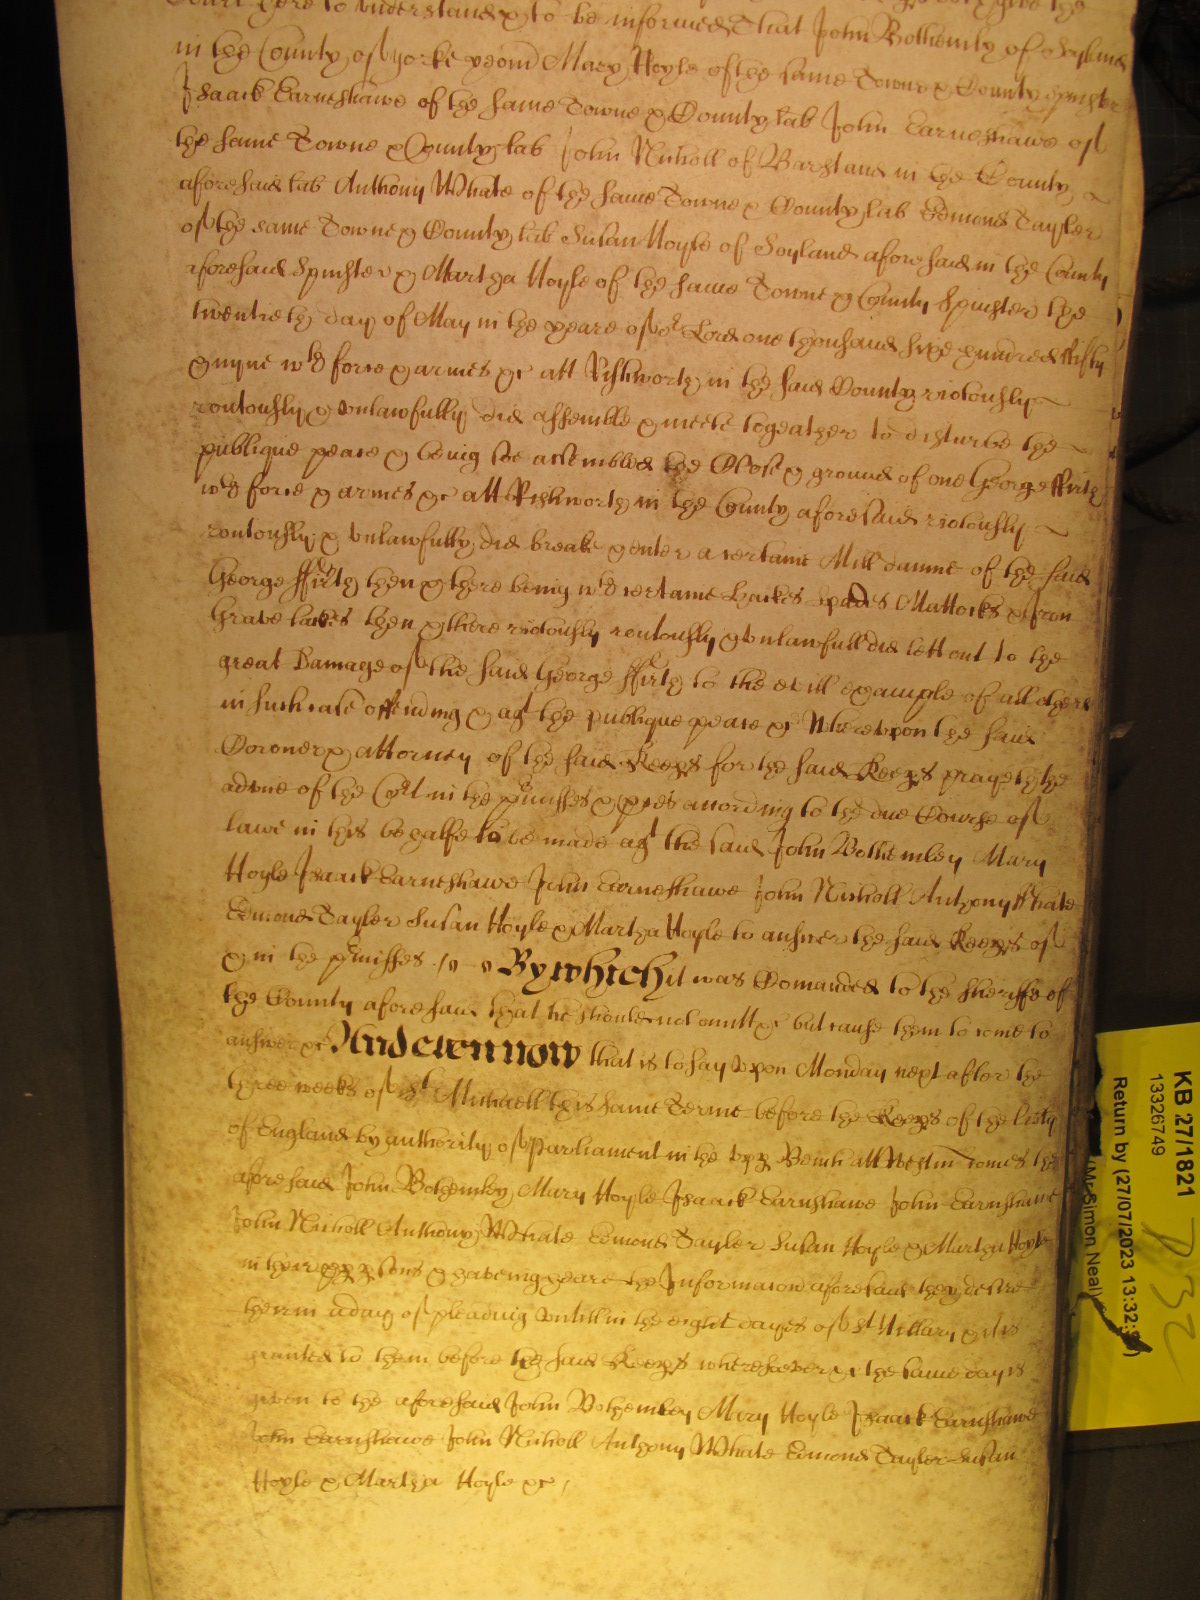 Court here to understand & to be informed That John Bothemley of Soyland
in the County of Yorke yeom Mary Hoyle of the same Towne & County Spinster
Isaack Earneshawe of the same Towne & County lab John Earneshawe of
the same Towne & County lab John Nicholl of Barsland in the County
aforesaid lab Anthony Whate of the same Towne & County lab Edmond Tayler
of the same Towne & County lab Susan Hoyle of Soyland aforesaid in the County
aforesaid Spinster & Martha Hoyle of the same Towne & County Spinster the
twentieth day of May in the yeare of or Lord one thousand sixe hundred ffifty
& nyne wth force & armes &c att Rishworth in the said County riotously
routously & unlawfully did assemble & meete togeather to disturbe the
publique peace & being soe assembled the Close & ground of one George ffirth
wth force & armes &c att Rishworth in the County aforesaid riotously
routously & unlawfully did breake & enter a certaine Mill damme of the said
George ffirth then & there being wth certaine Hackes spades Mattocks & Iron
then & there riotously routously & unlawfull did lett out to the
great Damage of the said George ffirth to the evill example of all others
in such case offending & agt the publique peace &c Whereupon the said
Coroner & attorney of the said Keeps for the said Keeps prayeth the
advice of the Cort in the pmisses & pces according to the due Course of
lawe in this behalfe to be made agt the said John Bothemley Mary
Hoyle Isaack Earneshawe John Earneshawe John Nicholl Anthony Whate
Edmond Tayler Susan Hoyle & Martha Hoyle to answer the said Keeps of
& in the pmisses By which it was Comanded to the Sheriffe of
the County aforesaid that he should not omitt &c but cause them to come to
answer &c And even now that is to say upon Monday next after the
three weeks of St Michaell this same Terme before the Keeps of the lity
of England by authority of Parliament in the upp Bench att Westm comes the
aforesaid John Bothemley Mary Hoyle Isaack Earnshawe John Earnshawe
John Nicholl Anthony Whate Edmond Tayler Susan Hoyle & Martha Hoyle
in their pp psons & haveing heard the Informacon aforesaid they desire
therein a day of pleading untill in the eight dayes of St Hillary & it is
granted to them before the said Keeps wheresoever &c the same day is
given to the aforesaid John Bothemley Mary Hoyle Isaack Earnshawe
John Earnshawe John Nicholl Anthony Whate Edmond Tayler Susan
Hoyle & Martha Hoyle &c
KB 27/1821
13326749
Return by (27/07/2023 13:32:
(Mr Simon Neal)